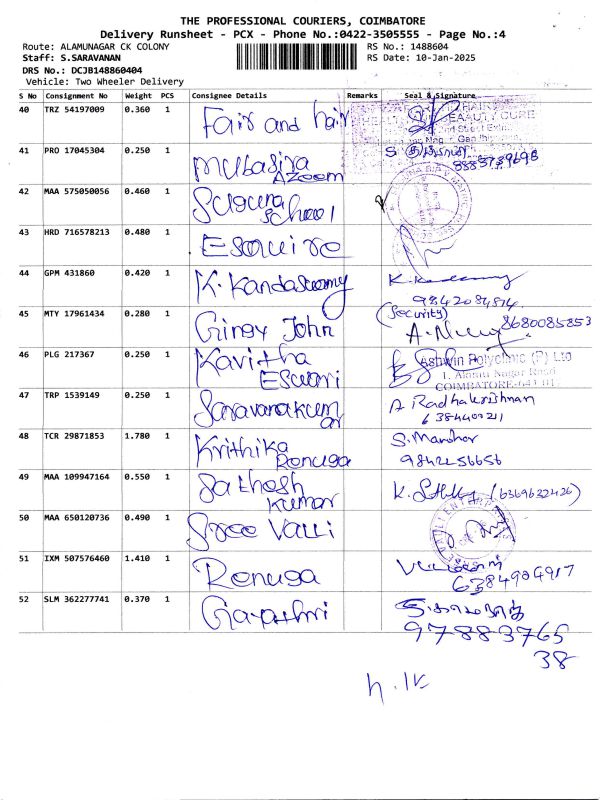 THE PROFESSIONAL COURIERS, COIMBATORE
Delivery Runsheet - PCX - Phone No.:0422-3505555 - Page No.:4
Route: ALAMUNAGAR CK COLONY RS No.: 1488604
Staff: S.SARAVANAN RS Date: 10-Jan-2025
DRS No.: DCJB148860404
Vehicle: Two Wheeler Delivery
S No Consignment No Weight PCS Consignee Details Remarks Seal & Signature
40 TRZ 54197009 0.360 1 Fair and hair
41 PRO 17045304 0.250 1 Mubasira
Azeem
42 MAA 575050056 0.460 1
School
43 HRD 716578213 0.480 1 Esquire
44 GPM 431860 0.420 1 K. Kandaswamy
9842084814
(Security)
45 MTY 17961434 0.280 1 Girey John 8680085853
46 PLG 217367 0.250 1 Kavitha Ashwin Polyclinic (P) Ltd
Eswari 1, Alamu Nagar Road
COIMBATORE-641 01
47 TRP 1539149 0.250 1 Saravanakum A Radhakrishnan
ar
48 TCR 29871853 1.780 1 Krithika S. Manohar
Renuga 9842256656
49 MAA 109947164 0.550 1 Sathesh (6369632426)
Kumar
50 MAA 650120736 0.490 1 Sree Valli
51 IXM 507576460 1.410 1 Renuga
6384904917
52 SLM 362277741 0.370 1 Gayathri
97883765
38